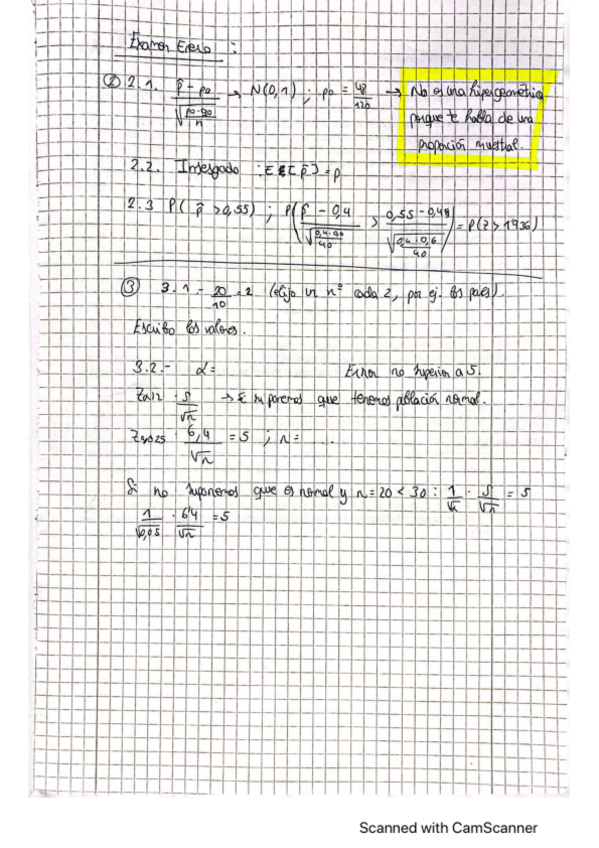 Examen Enero :
② 2.1. p̂ - p₀ / √(p₀·q₀ / n) → N(0,1) ; p₀ = 48/120 → No es una hipergeométrica
porque te habla de una
proporción muestral.
2.2. Insesgado : E[p̂] = p
2.3 P(p̂ > 0,55) ; P(p̂ - 0,4 / √(0,4·0,6 / 40) > 0,55 - 0,4 / √(0,4·0,6 / 40)) = P(Z > 1'936)
③ 3.1.- 20/10 = 2 (elijo un nº cada 2, por ej. los pares).
Escribo los valores.
3.2.- α = Error no superior a 5.
Zα/2 · S/√n → si suponemos que tenemos población normal.
Z0,025 · 6,4/√n = 5 ; n = ....
Si no suponemos que es normal y n = 20 < 30 : 1/√α · S/√n = 5
1/√0,05 · 6'4/√n = 5
Scanned with CamScanner